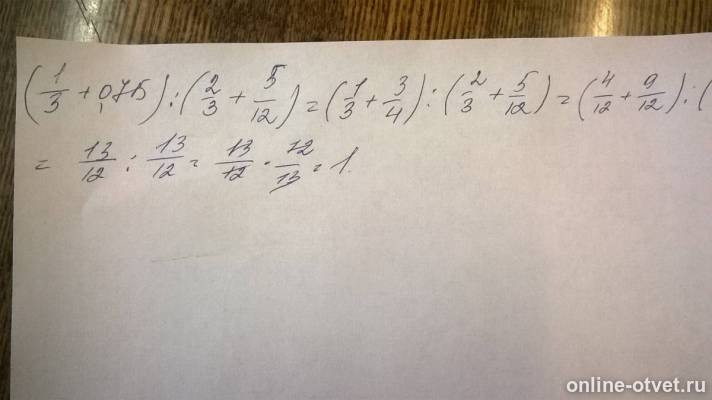 (1/3 + 0,75) : (2/3 + 5/12) = (1/3 + 3/4) : (2/3 + 5/12) = (4/12 + 9/12) : (
= 13/12 : 13/12 = 13/12 · 12/13 = 1.
online-otvet.ru